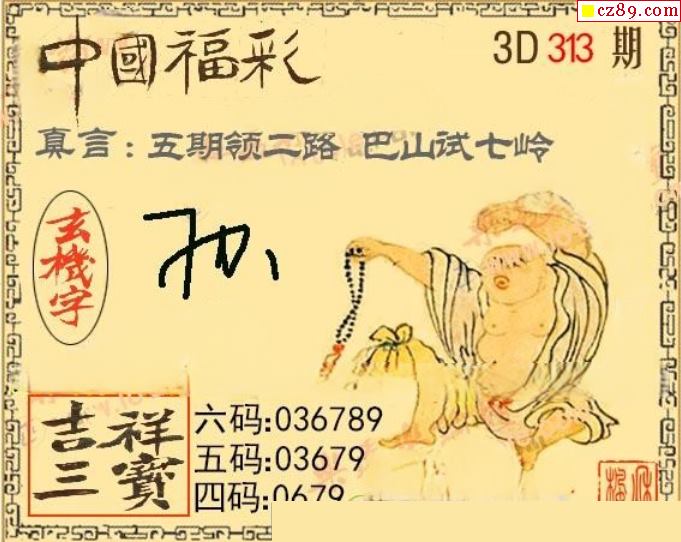 cz89.com
中國福彩
3D 313 期
真言：五期领二路 巴山试七岭
玄機字
吉祥
三寶
六码:036789
五码:03679
四码:0679